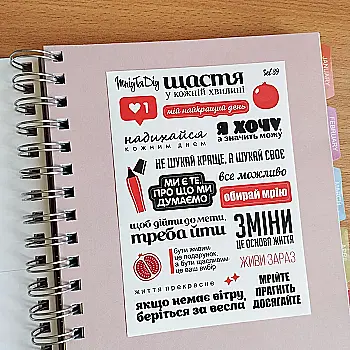 MriyTaDiy
Set 99
щастя
у кожній хвилині
1
мій найкращий день
надихайся
кожним днем
я хочу
а значить можу
не шукай краще, а шукай своє
ми є те
про що ми
думаємо
все можливо
обирай мрію
щоб дійти до мети,
треба йти
зміни
це основа життя
бути живим
це подарунок,
а бути щасливим
це ваш вибір
живи зараз
життя прекрасне
якщо немає вітру,
беріться за весла
мрійте
прагніть
досягайте
JANUARY
FEBRUARY